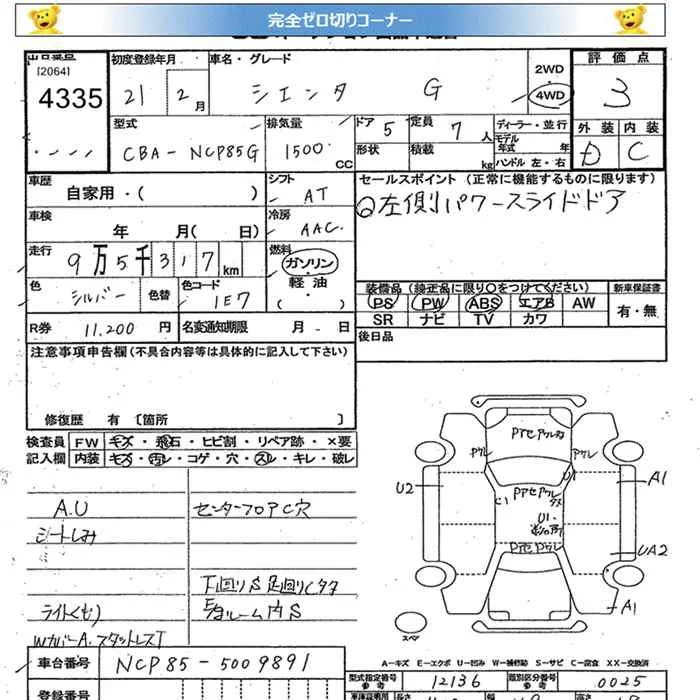 完全ゼロ切りコーナー
出品番号
[2064]
4335
初度登録年月
21 2 月
車名・グレード
シエンタ G
2WD
4WD
評価点
3
外装 内装
D C
型式
CBA-NCP85G
排気量
1500 CC
ドア 5
定員 7 人
形状
積載 kg
ディーラー・並行
モデル年式 年
ハンドル 左・右
車歴
自家用・( )
シフト
AT
車検
年 月( 日)
冷房
AAC
走行
9万5千317 km
燃料
ガソリン
軽油
( )
色
シルバー
色替
色コード
1E7
R券 11.200 円
名変通知期限 月 日
セールスポイント (正常に機能するものに限ります)
左側パワースライドドア
装備品 (純正品に限り○をつけてください)
PS PW ABS エアB AW
SR ナビ TV カワ
新車保証書
有・無
後日品
注意事項申告欄(不具合内容等は具体的に記入して下さい)
修復歴 有 〔箇所 〕
検査員記入欄
FW キズ・飛石・ヒビ割・リペア跡・×要
内装 キズ・汚レ・コゲ・穴・スレ・キレ・破レ
A.U
シートしみ
ライトくもり
WカバーA.スタットレスT
センターフロアC穴
下回りS 足回りCタタ
U2
A1
UA2
A1
C1
U1
U1
スペア
A-キズ E-エクボ U-凹み W-補修跡 S-サビ C-腐食 XX-交換済
車台番号 NCP85-5009891
型式指定番号 12136
類別区分番号 0025
登録番号